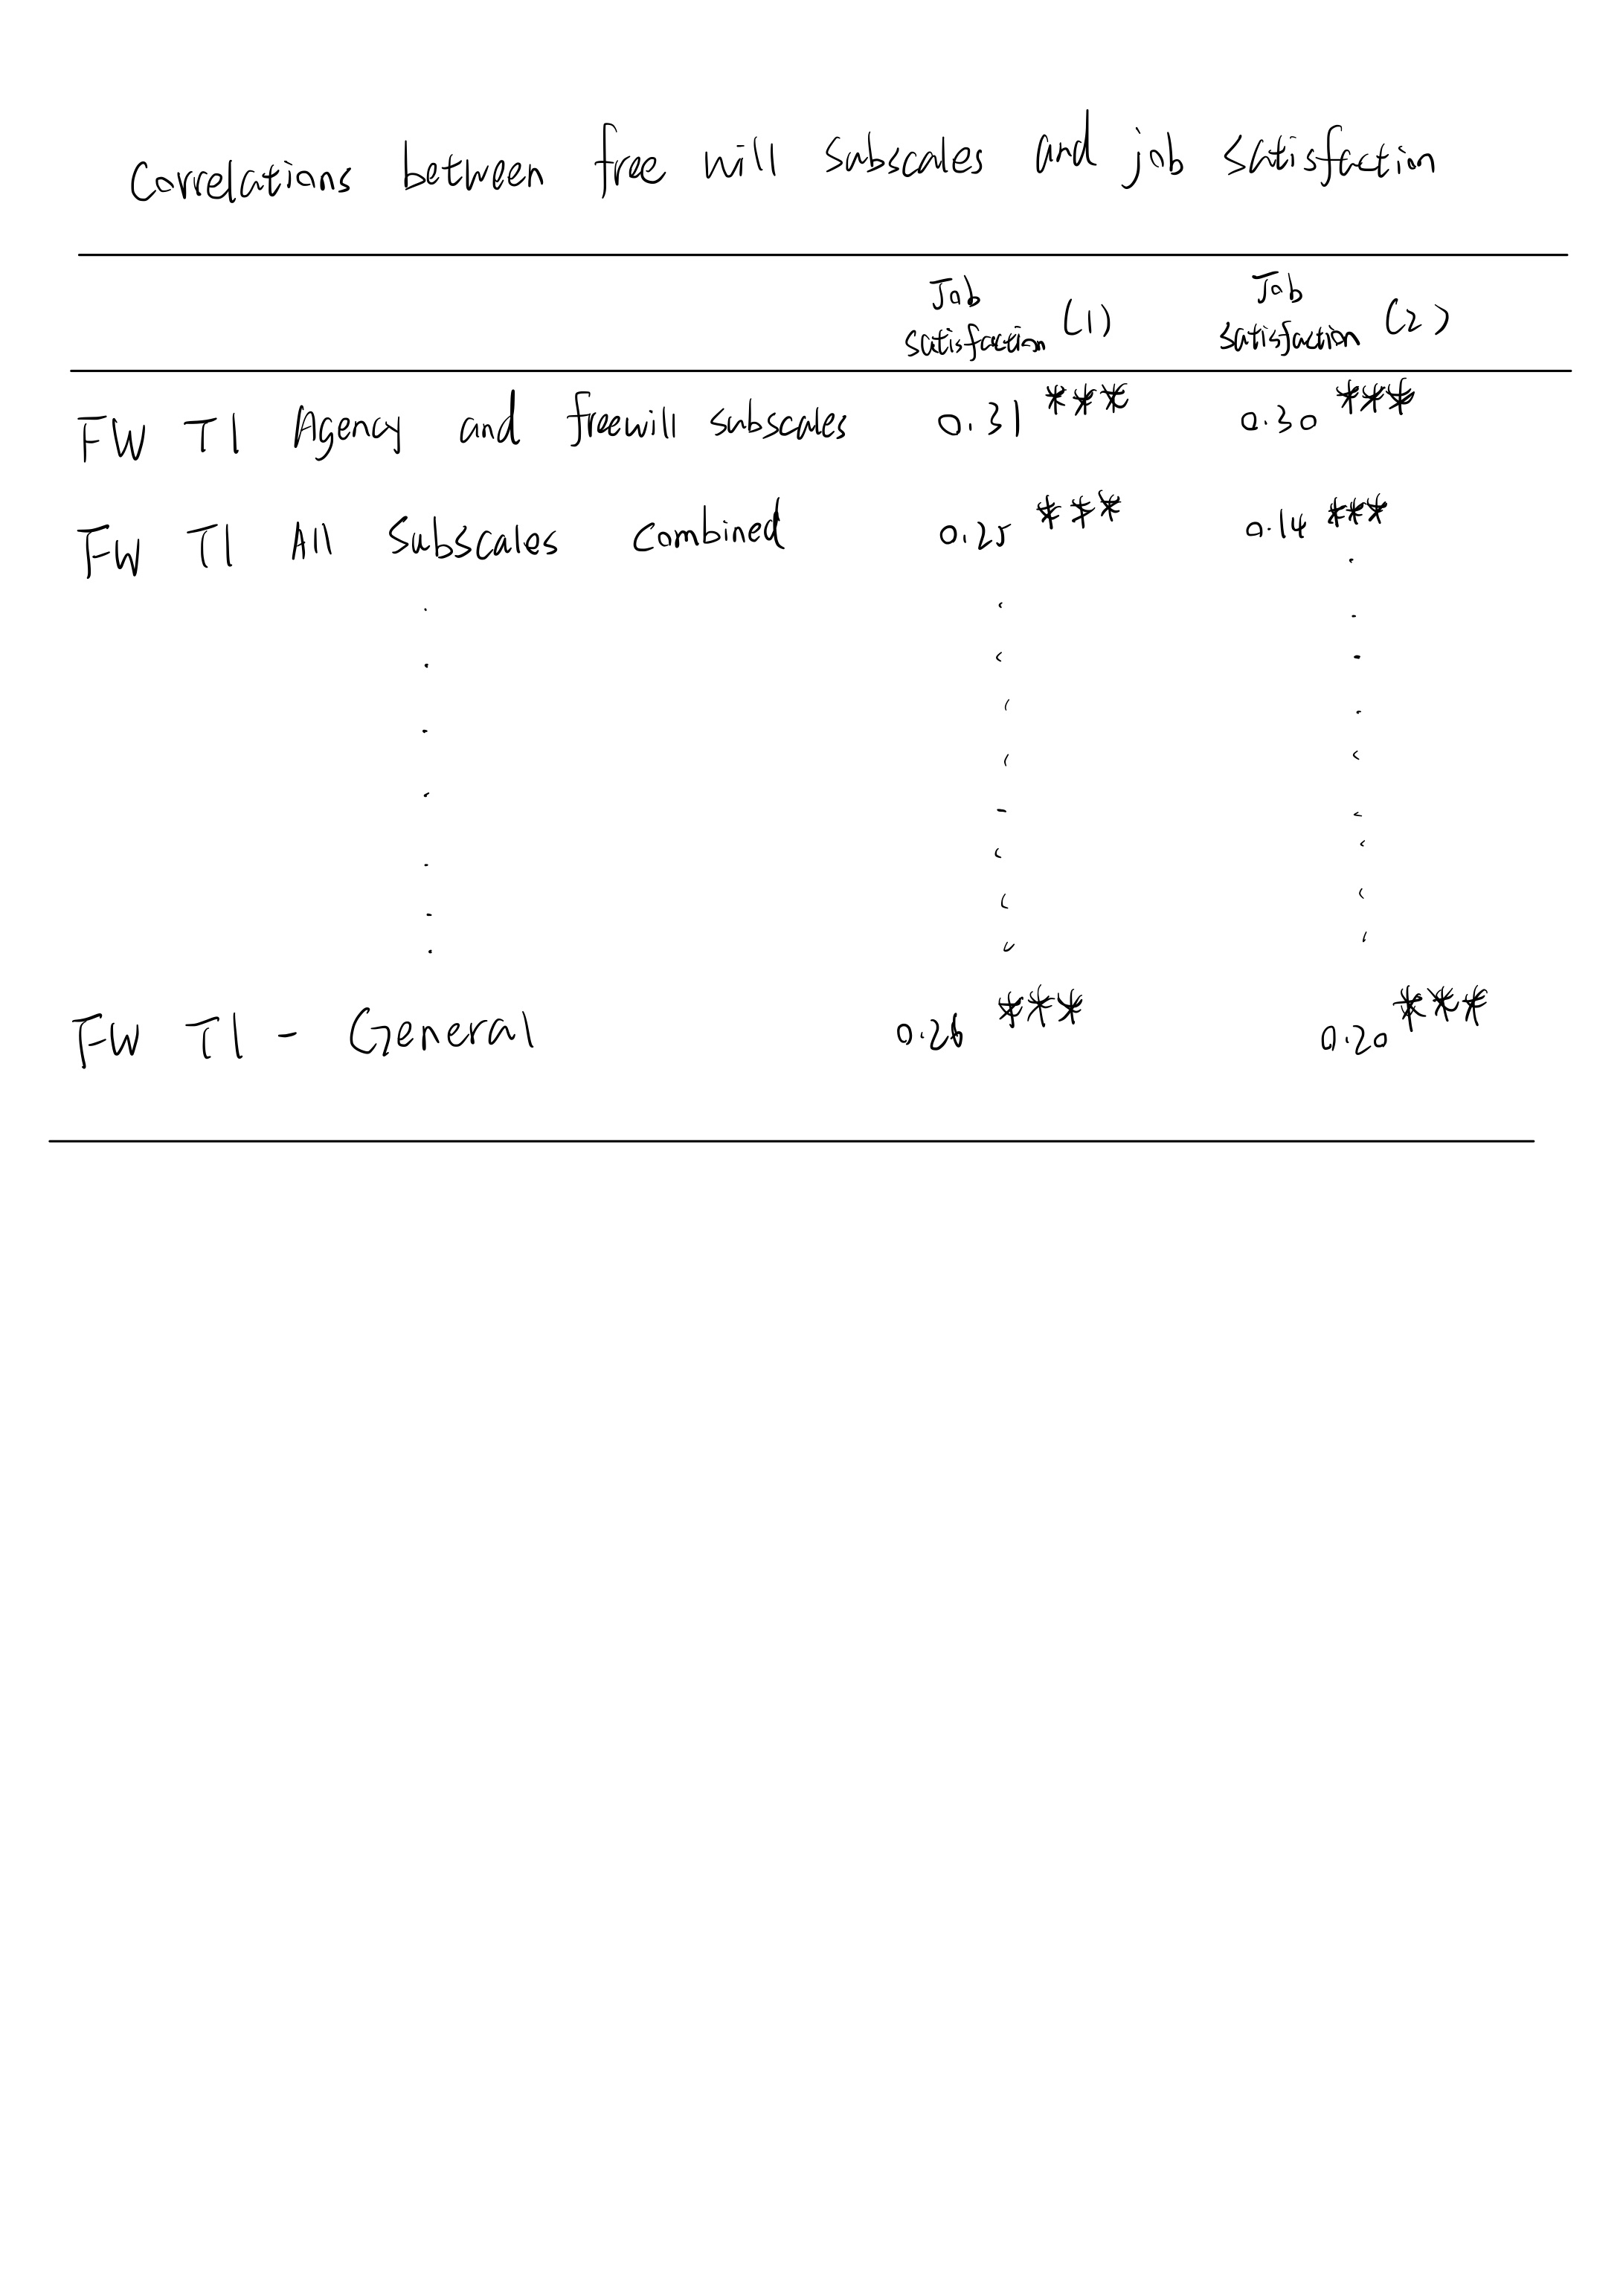 Correlations between free will subscales and job satisfaction
Job satisfaction (1) Job satisfaction (2)
FW T1 Agency and freewill subscales 0.31 *** 0.30 ***
FW T1 All Subscales Combined 0.25 *** 0.14 ***
FW T1 - General 0.26 *** 0.20 ***